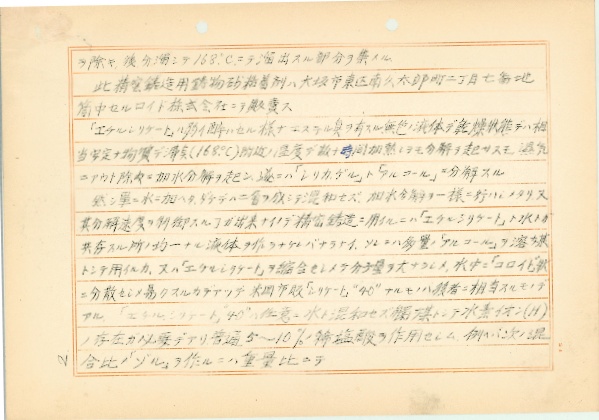 ヲ除キ、後分溜シテ168℃ニテ溜出スル部分ヲ集ム
此精密鋳造用鋳物砂粘着剤ハ大阪市東区南久太郎町二丁目七番地
筒中セルロイド株式会社ニテ販賣ス
「エチルシリケート」ハ エステル臭ヲ有スル無色ノ液体デ乾燥状態デハ相
当安定ナ物質デ沸点(168℃)附近ノ温度デ数十時間加熱シテモ分解ヲ起サズモ 湿気
ニアウト除々ニ加水分解ヲ起シ、遂ニハ「シリカ、ゲル」ト「アルコール」ニ分解スル
然シ單ニ水ニ加ヘタダケデハ二層ヲ成シテ混和セズ、加水分解ヲ一様ニ行ハシメタリ又
其分解速度ヲ制御スル 出来ナイノデ精密鋳造ニ用イルニハ「エチルシリケート」ト水トガ
共存スル所ノ均一ナル液体ヲ作ラナケレバナラナイ、ソレニハ多量ノ「アルコール」ヲ溶媒
トシテ用イルカ、又ハ「エチルシリケート」ヲ縮合セシメテ分子量ヲ大ナラシメ、水中ニ「コロイド」状
ニ分散セシメ易クスルカデアッテ 米國市販「シリケート」"40"ナルモノハ後者ニ相当スルモノデ
アル、「エチルシリケート」"40"ハ任意ニ水ト混和セズ 触媒トシテ水素イオン(H)
ノ存在ガ必要デアリ普通5〜10%稀塩酸ヲ作用セシム、例ヘバ次ノ混
合比ノ「ゾル」ヲ作ルニハ重量比ニテ
2